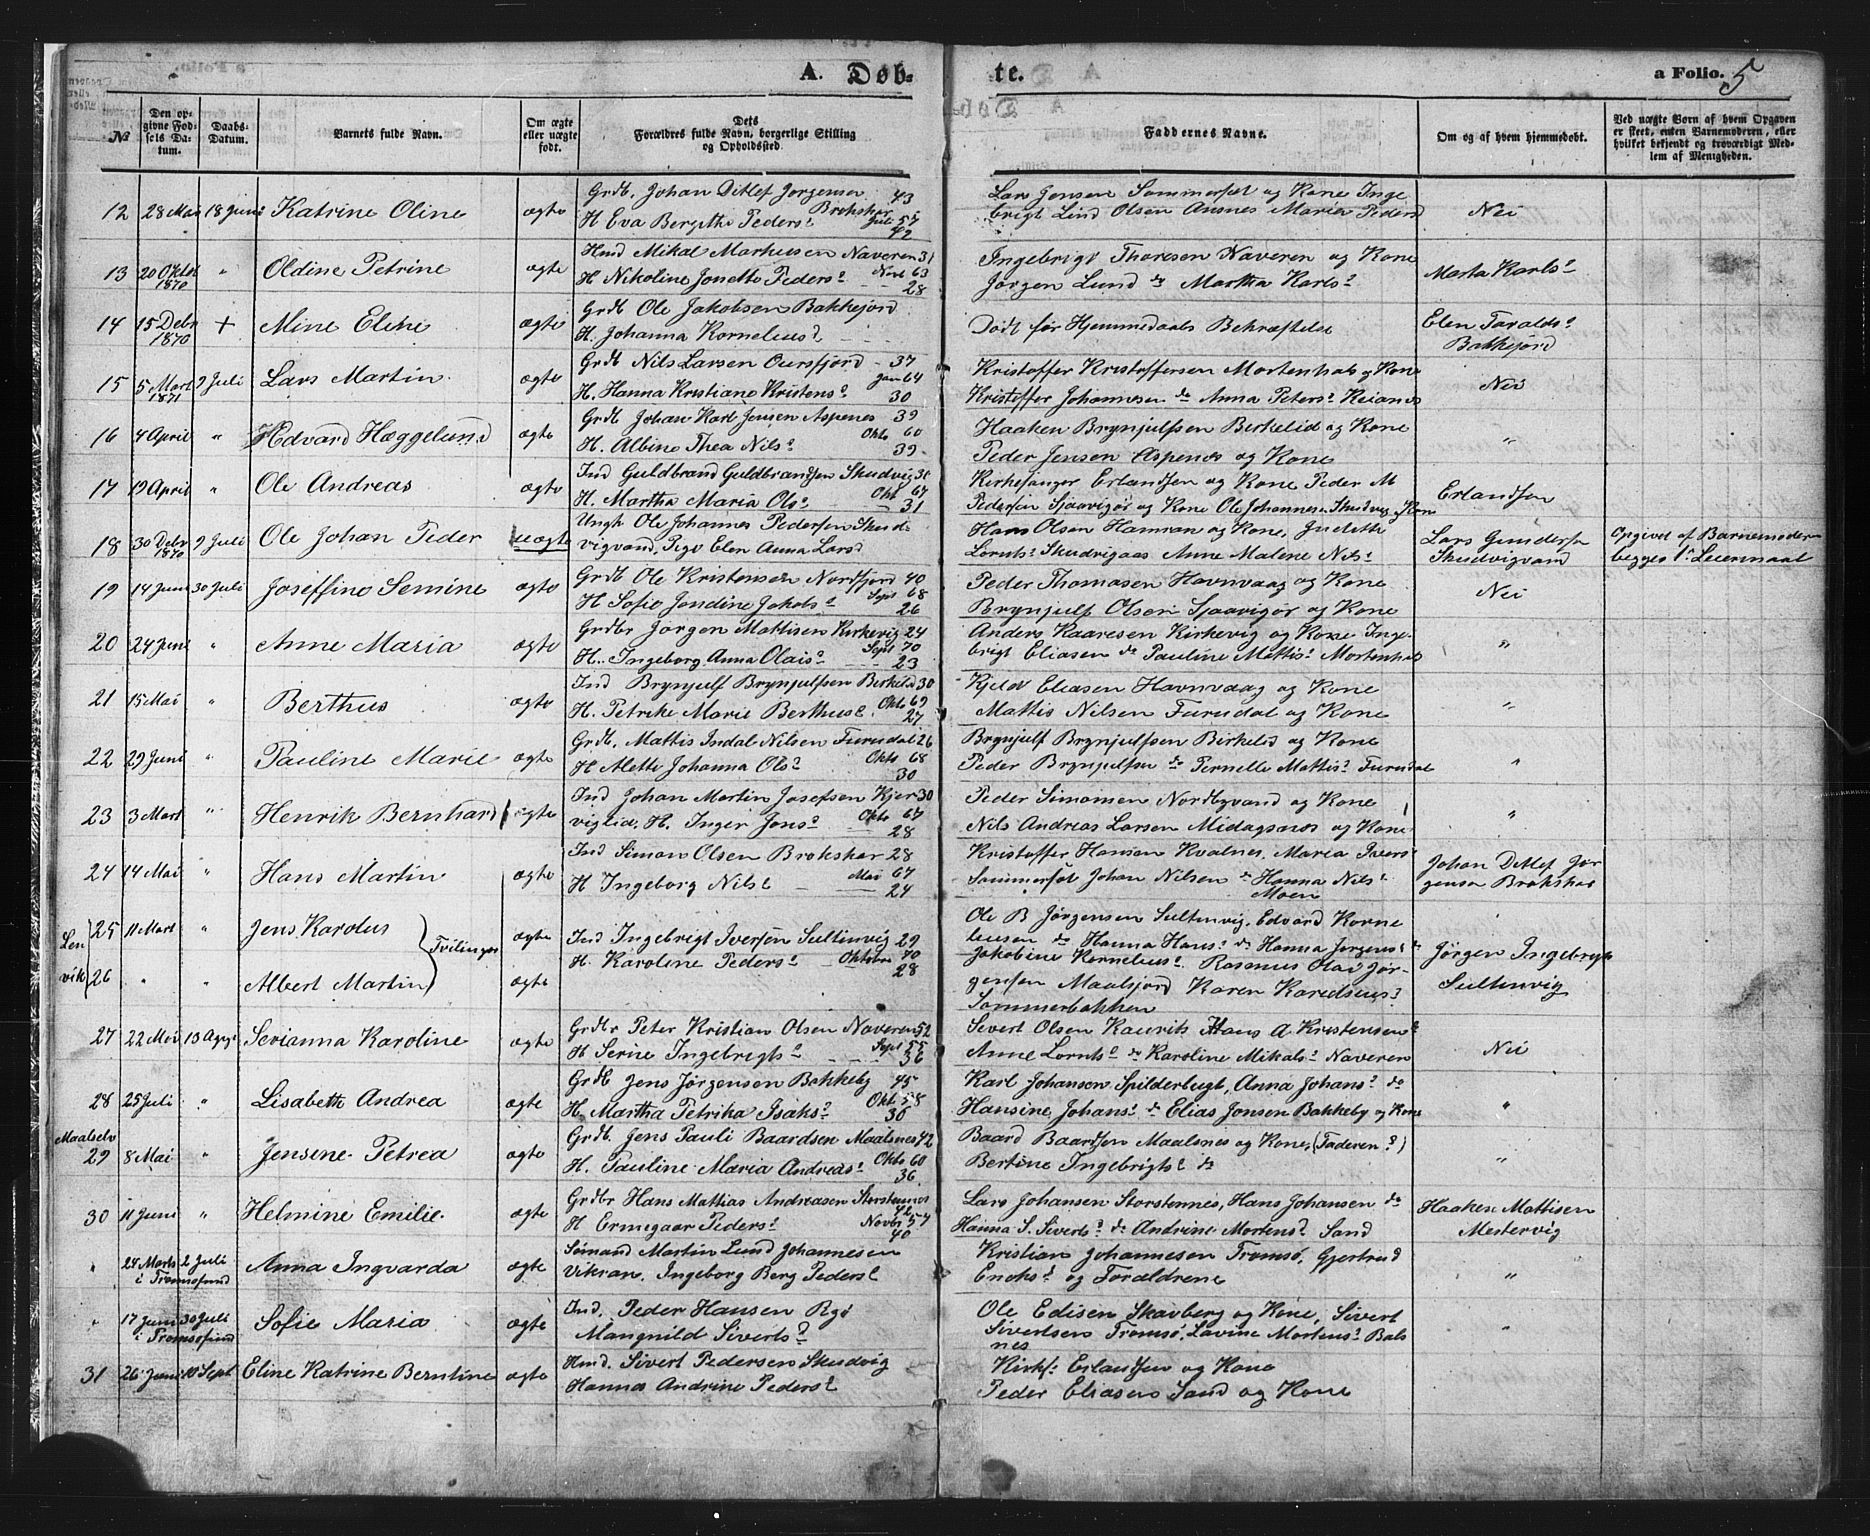 A. Døb-
te.
a Folio. 5
№
Den opgivne Fødsels Datum.
Daabs-Datum.
Barnets fulde Navn.
Om ægte eller uægte født.
Dets Forældres fulde Navn, borgerlige Stilling og Opholdssted.
Faddernes Navne.
Om og af hvem hjemmedøbt.
Ved uægte Børn af hvem Opgaven er skeet, enten Barnemoderen, eller hvilket bekjendt og troværdigt Medlem af Menigheden.
12 28 Mai 18 Juni Katrine Oline ægte
Grdb. Johan Ditlef Jørgensen 43
Brokskar
H Eva Bergithe Peders Juli 55
42
Lars Jensen Sommersæt og Kone Inge
brigt Lind Olsen Ansnes Maria Peders
Nei
13 20 Oktob 1870 " Oldine Petrine ægte
Hmd Mikal Markussen Naveren 31
H Nikoline Jonette Peders Novb 63
28
Ingebrigt Thoresen Naveren og Kone
Jørgen Lund do Martha Karls
Marta Karls
14 15 Debr 1870 + Mine Eline ægte
Grdb Ole Jakobsen Bakkejord
H. Johanna Kornelius
Dødt før Hjemmedaabs Bekræftelse
Elen Taralds
Bakkejord
15 5 Mart 1871 9 Juli Lars Martin ægte
Grdb Nils Larsen Oursfjord 37
H. Hanna Kristiane Kristens Jan 64
30
Kristoffer Kristoffersen Mortenhals og Kone
Kristoffer Johannesen do Anna Peters
Nei
16 4 April " Hedvard Hæggelund ægte
Grdb Johan Karl Jensen Aspenes 39
H. Albine Thea Nils Okto 60
39
Haaken Brynjulfsen Birkelid og Kone
Peder Jensen Aspenes og Kone
"
17 19 April " Ole Andreas ægte
Ind Guldbrand Guldbrandsen Skudvig 31
H. Martha Maria Ols Okt 67
31
Kirkesanger Erlandsen og Kone Peder M
Pedersen Sjaavigør og Kone Ole Johannesen Skudvig og Kone
Erlandsen
18 30 Debr 1870 9 Juli Ole Johan Peder uægte
Ungk Ole Johannes Pedersen Skud
vigvand, Pige Elen Anna Lars
Hans Olsen Hamran og Kone, Judith
Lornts Skudvigaas Anne Malene Nils
Lars Gundersen
Skudvigvand
Opgivet af Barnemoderen
begges 1s Leiermaal
19 14 Juni 30 Juli Joseffine Semine ægte
Grdb Ole Kristensen Nordfjord 40
H Sofie Jondine Jakobs Sept 68
26
Peder Thomasen Havnvaag og Kone
Brynjulf Olsen Sjaavigør og Kone
Nei
20 24 Juni " Anne Maria ægte
Grdbr Jørgen Mattisen Kirkevig 24
H. Ingeborg Anna Olais Sept 70
23
Anders Kaaresen Kirkevig og Kone Inge-
brigt Eliasen do Pauline Mattis Mortenhals
"
21 15 Mai " Berthus ægte
Ind Brynjulf Brynjulfsen Birkelid 30
H. Petrike Marie Berthus Okto 69
27
Kjeld Eliasen Havnvaag og Kone
Mattis Nilsen Furudal og Kone
"
22 29 Juni " Pauline Marie ægte
Grdb. Mattis Indal Nilsen Furudal 26
H Alette Johanna Ols Okto 68
30
Brynjulf Brynjulfsen Birkelid og Kone
Peder Brynjulfsen do Pernelle Mattis Furudal
"
23 3 Mart " Henrik Bernhard ægte
Ind Johan Martin Josefsen Kjer 30
viglid, H. Inger Jons Okto 67
28
Peder Simonsen Nordbyvand og Kone
Nils Andreas Larsen Midagsnes og Kone
"
24 14 Mai " Hans Martin ægte
Ind Simon Olsen Brokskar 28
H Ingeborg Nils Mai 67
24
Kristoffer Hansen Kvalnes, Maria Ivers
Sommersæt Johan Nilsen do Hanna Nils
Moen
Johan Ditlef Jør
gensen Brokskar
Len
vik
25 11 Mart " Jens Karolus ægte
26 " " Albert Martin ægte
Tvilinger
Ind Ingebrigt Iversen Sultinvig 29
H. Karoline Peders Oktober 70
28
Ole B Jørgensen Sultinvig, Edvard Korne
liusen do Hanna Hans do Hanna Jørgens do
Jakobine Kornelius Rasmus Olai Jør-
gensen Maalsjord Karen Karelius
Sommerbakken
Jørgen Ingebrigts
Sultinvig
27 22 Mai 13 Aug Serianna Karoline ægte
Grdbr Peter Kristian Olsen Naveren 52
H Serine Ingebrigts Sept 55
36
Sivert Olsen Hans A Kristensen
Anne Lornts do Karoline Mikals Naveren
Nei
28 25 Juli " Lisabeth Andrea ægte
Grdb Jens Jørgensen Bakkeby 45
H. Martha Petrika Isaks Okt 58
36
Karl Johansen Spilderbugt, Anna Johans do
Hansine Johans do Elias Jonsen Bakkeby og Kone
"
Maalselv
29 8 Mai " Jensine Petrea ægte
Grdb. Jens Pauli Baardsen Maalsnes 42
H. Pauline Maria Andreas Okto 60
36
Baard Baardsen Maalsnes og Kone, (Faderen?)
Bertine Ingebrigts do
"
30 11 Juni " Helmine Emilie ægte
Grdbr Hans Mattias Andreasen Storstennes
42
H Ermegaar Peders Novbr 57
40
Lars Johansen Storstennes, Hans Johansen do
Hanna S. Siverts do Andrine Mortens Sand
Haaken Mattisen
Mestervig
" 24 Marts 2 Juli i Tromsøsund Anna Ingvarda ægte
Sømand Martin Lund Johannesen
Vikran, Ingeborg Berg Peders
Kristian Johannesen Tromsø, Gjertrud
Enoks og Forældrene
"
" 17 Juni 30 Juli i Tromsøsund Sofie Maria ægte
Ind. Peder Hansen Ryø
Mangnild Siverts
Ole Edisen Skavberg og Kone, Sivert
Sivertsen Tromsø, Lavine Mortens Bals
nes
"
31 26 Juni 10 Sept Eline Katrine Berntine ægte
Hmd. Sivert Pedersen Skudvig
Hanna Andrine Peders
Kirks. Erlandsen og Kone
Peder Eliasen Sand og Kone